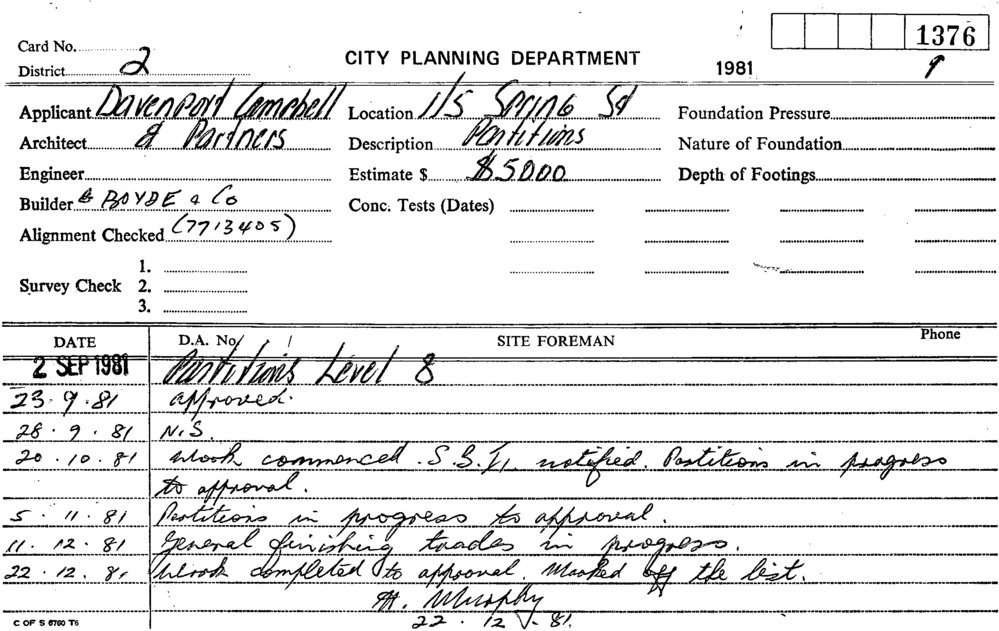 1376
Card No.
District 2
CITY PLANNING DEPARTMENT
1981
9
Applicant Davenport Campbell
Location 1/5 Spring St
Foundation Pressure
Architect & Partners
Description Partitions
Nature of Foundation
Engineer
Estimate $ $5000
Depth of Footings
Builder BOYDE & Co
Conc. Tests (Dates)
Alignment Checked (7713405)
Survey Check 1.
2.
3.
DATE D.A. No. SITE FOREMAN Phone
2 SEP 1981 Partitions Level 8
23.9.81 approved.
28.9.81 N.S.
20.10.81 Work commenced. S.B.I. notified. Partitions in progress
to approval.
5.11.81 Partitions in progress to approval.
11.12.81 General finishing trades in progress.
22.12.81 Work completed to approval. Marked off the list.
H. Murphy
22.12.81.
C OF S 6760 T6